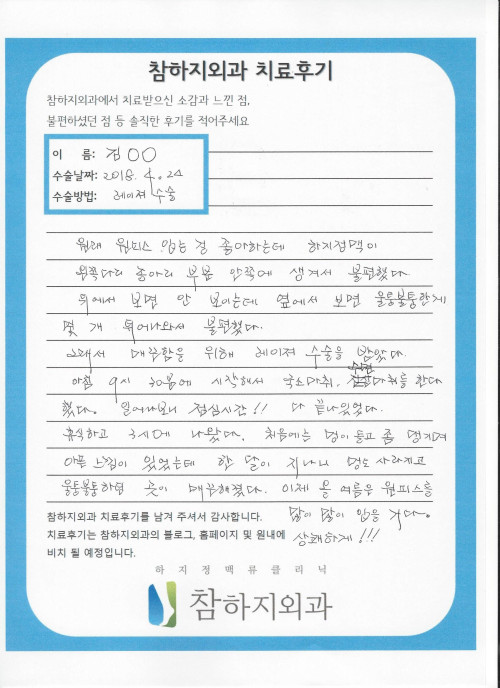 참하지외과 치료후기
참하지외과에서 치료받으신 소감과 느낀 점,
불편하셨던 점 등 솔직한 후기를 적어주세요
이 름: 김○○
수술날짜: 2018. 4. 24
수술방법: 레이져 수술
원래 원피스 입는 걸 좋아하는데 하지정맥이
왼쪽다리 종아리 부분 안쪽에 생겨서 불편했다.
뒤에서 보면 안 보이는데 옆에서 보면 울퉁불퉁한게
몇 개 튀어나와서 불편했다.
그래서 매꾸함을 위해 레이져 수술을 받았다.
아침 9시 30분에 시작해서 국소마취, 수면마취를 한다
했다. 일어나보니 점심시간!! 다 끝나있었다.
휴식하고 3시에 나왔다. 처음에는 멍이 들고 좀 땡기며
아픈 느낌이 있었는데 한 달이 지나니 멍도 사라지고
울퉁불퉁하던 곳이 매꾸해졌다. 이제 올 여름은 원피스를
많이 많이 입을 거다.
상쾌하게!!!
참하지외과 치료후기를 남겨 주셔서 감사합니다.
치료후기는 참하지외과의 블로그, 홈페이지 및 원내에
비치 될 예정입니다.
하지정맥류클리닉
참하지외과